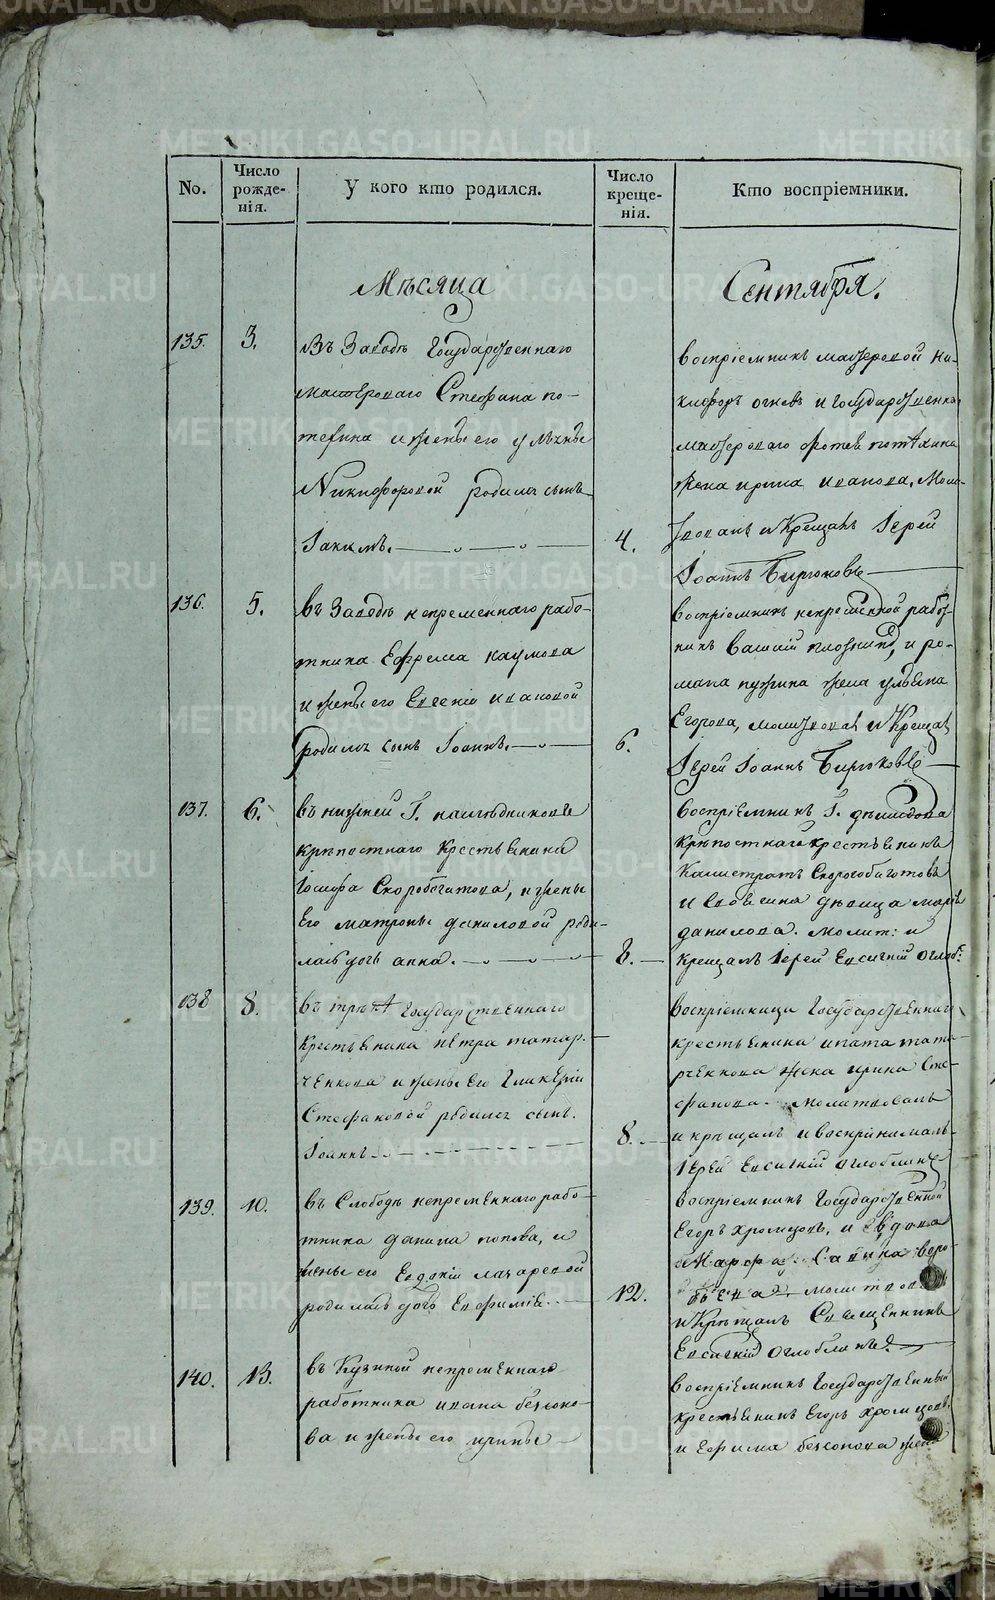 No.
Число рожде-нія.
У кого кто родился.
Число креще-нія.
Кто воспріемники.
Мѣсяца
Сентября.
135.
3.
Въ Заводѣ Государственнаго
мастероваго Стефана по-
терина и жены его ульяны
Никифоровой родился сынъ
Іакимъ.
4.
воспріемникъ мастеровой Ни-
кифоръ огневъ и государственна
мастероваго
жена ирина иванова. Моли-
твовалъ и Крещалъ Іерей
Іоаннъ Бирюковъ
136.
5.
въ Заводѣ непременнаго рабо-
тника Ефрема наумова
и жены его Евгеніи ивановой
родился сынъ Іоаннъ.
6.
воспріемникъ непременной работ-
никъ и ро-
мана жена ульяна
Егорова, молитвовалъ и Крещалъ
Іерей Іоаннъ Бирюковъ
137.
6.
въ нижней Г. наследниковъ
крѣпостнаго Крестьянина
Іосифа Скоробогатова, и жены
Его матроны даниловой роди-
лась дочь анна.
8.
воспріемникъ Г. демидова
крѣпостнаго крестьянинъ
Калистратъ Скоробогатовъ
и девица марія
данилова. молит: и
крещалъ Іерей Евсигній Оглоб:
138
8.
въ Государственнаго
Крестьянина петра татар-
ченкова и жены Его Гликеріи
Стефановой родился сынъ
Іоаннъ.
8.
воспріемница Государственнаго
крестьянина ипата тата-
рченкова жена ирина Сте-
фанова. молитвовалъ
и крещалъ и воспринималъ
Іерей Евсигній Оглоблинъ
139.
10.
въ Слободѣ непременнаго рабо-
тника данила попова, и
жены его Евдокіи лазаревой
родилась дочь Евфимія.
12.
воспріемникъ Государственной
Егоръ хромцовъ, и вдова
Марфа Савина
молитвовалъ
и Крещалъ Священникъ
Евсигній Оглоблинъ
140.
13.
въ Кузиной непременнаго
работника ивана безсоно-
ва и жены его ирины
воспріемникъ Государственный
крестьянинъ Егоръ хромцовъ,
и Ефима безсонова жена
METRIKI.GASO-URAL.RU